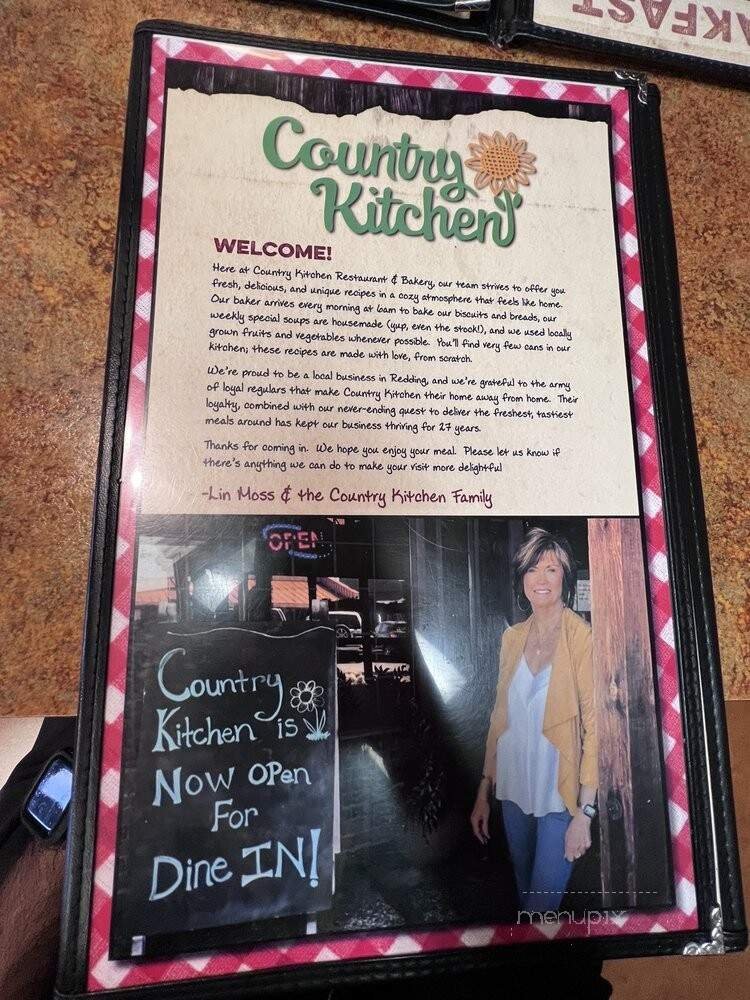 AKFAST
Country
Kitchen
WELCOME!
Here at Country Kitchen Restaurant & Bakery, our team strives to offer you
fresh, delicious, and unique recipes in a cozy atmosphere that feels like home.
Our baker arrives every morning at 6am to bake our biscuits and breads, our
weekly special soups are housemade (yup, even the stock!), and we used locally
grown fruits and vegetables whenever possible. You'll find very few cans in our
kitchen; these recipes are made with love, from scratch.
We're proud to be a local business in Redding, and we're grateful to the army
of loyal regulars that make Country Kitchen their home away from home. Their
loyalty, combined with our never-ending quest to deliver the freshest, tastiest
meals around has kept our business thriving for 27 years.
Thanks for coming in. We hope you enjoy your meal. Please let us know if
there's anything we can do to make your visit more delightful
-Lin Moss & the Country Kitchen Family
OPEN
Country
Kitchen is
Now OPen
For
Dine IN!
menupix